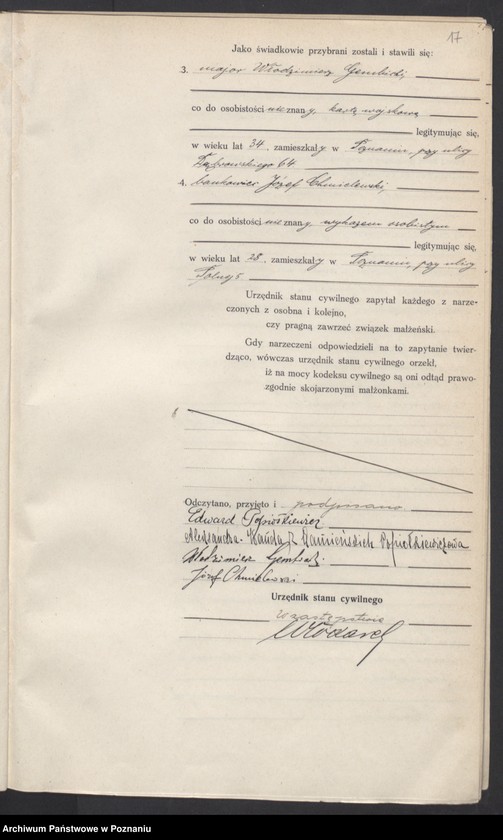 17
Jako świadkowie przybrani zostali i stawili się:
3. major Włodzimierz Gembicki
co do osobistości nieznany, kartą wojskową
legitymując się,
w wieku lat 34, zamieszkały w Poznaniu, przy ulicy
Dąbrowskiego 64
4. bankowiec Józef Chmielewski
co do osobistości nieznany wykazem osobistym
legitymując się,
w wieku lat 28, zamieszkały w Poznaniu, przy ulicy
Urzędnik stanu cywilnego zapytał każdego z narze-
czonych z osobna i kolejno,
czy pragną zawrzeć związek małżeński.
Gdy narzeczeni odpowiedzieli na to zapytanie twier-
dząco, wówczas urzędnik stanu cywilnego orzekł,
iż na mocy kodeksu cywilnego są oni odtąd prawo-
zgodnie skojarzonymi małżonkami.
Odczytano, przyjęto i podpisano
Edward Popiołkiewicz
Aleksandra-Wanda z Popiołkiewiczowa
Włodzimierz Gembicki
Józef Chmielewski
Urzędnik stanu cywilnego
w zastępstwie
Archiwum Państwowe w Poznaniu